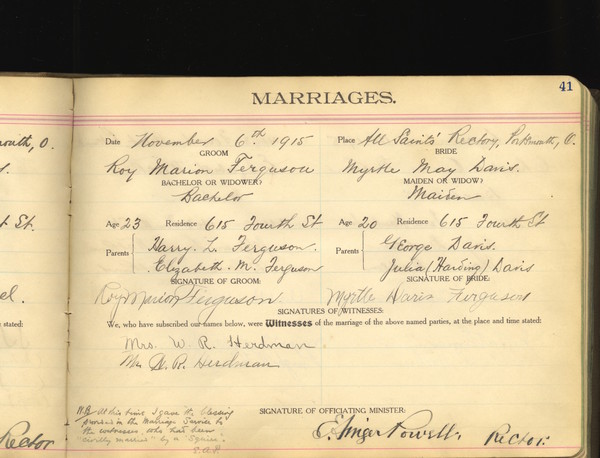 41
MARRIAGES.
outh, O.
Date November 6th 1915 Place All Saints' Rectory, Portsmouth, O.
GROOM BRIDE
Roy Marion Ferguson Myrtle May Davis.
BACHELOR OR WIDOWER? MAIDEN OR WIDOW?
Bachelor Maiden
St.
Age 23 Residence 615 Fourth St Age 20 Residence 615 Fourth St
Parents Harry. L. Ferguson. Parents George Davis.
Elizabeth. M. Ferguson Julia (Harding) Davis
SIGNATURE OF GROOM: SIGNATURE OF BRIDE:
Roy Marion Ferguson Myrtle Davis Ferguson
SIGNATURES OF WITNESSES:
e stated: We, who have subscribed our names below, were Witnesses of the marriage of the above named parties, at the place and time stated:
Mrs. W. R. Herdman
Mr W. R. Herdman
N.B. At this time I gave the blessing
provided in the Marriage Service to
the witnesses who had been
"civilly married" by a 'Squire.
E.A.P.
SIGNATURE OF OFFICIATING MINISTER:
Rector Powell, Rector.